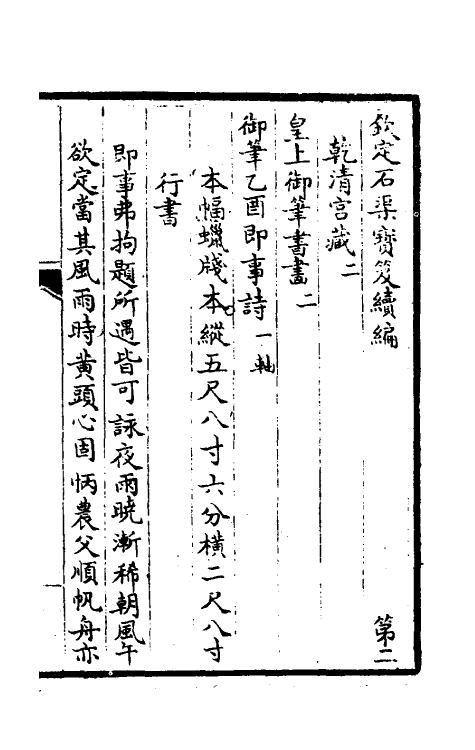 欽定石渠寶笈續編 第二
乾清宮藏二
皇上御筆書畫二
御筆乙酉即事詩一軸
本幅蠟牋本縱五尺八寸六分橫二尺八寸
行書
即事弗拘題所遇皆可詠夜雨曉漸稀朝風午
欲定當其風雨時黃頭心固怲農父順帆舟亦